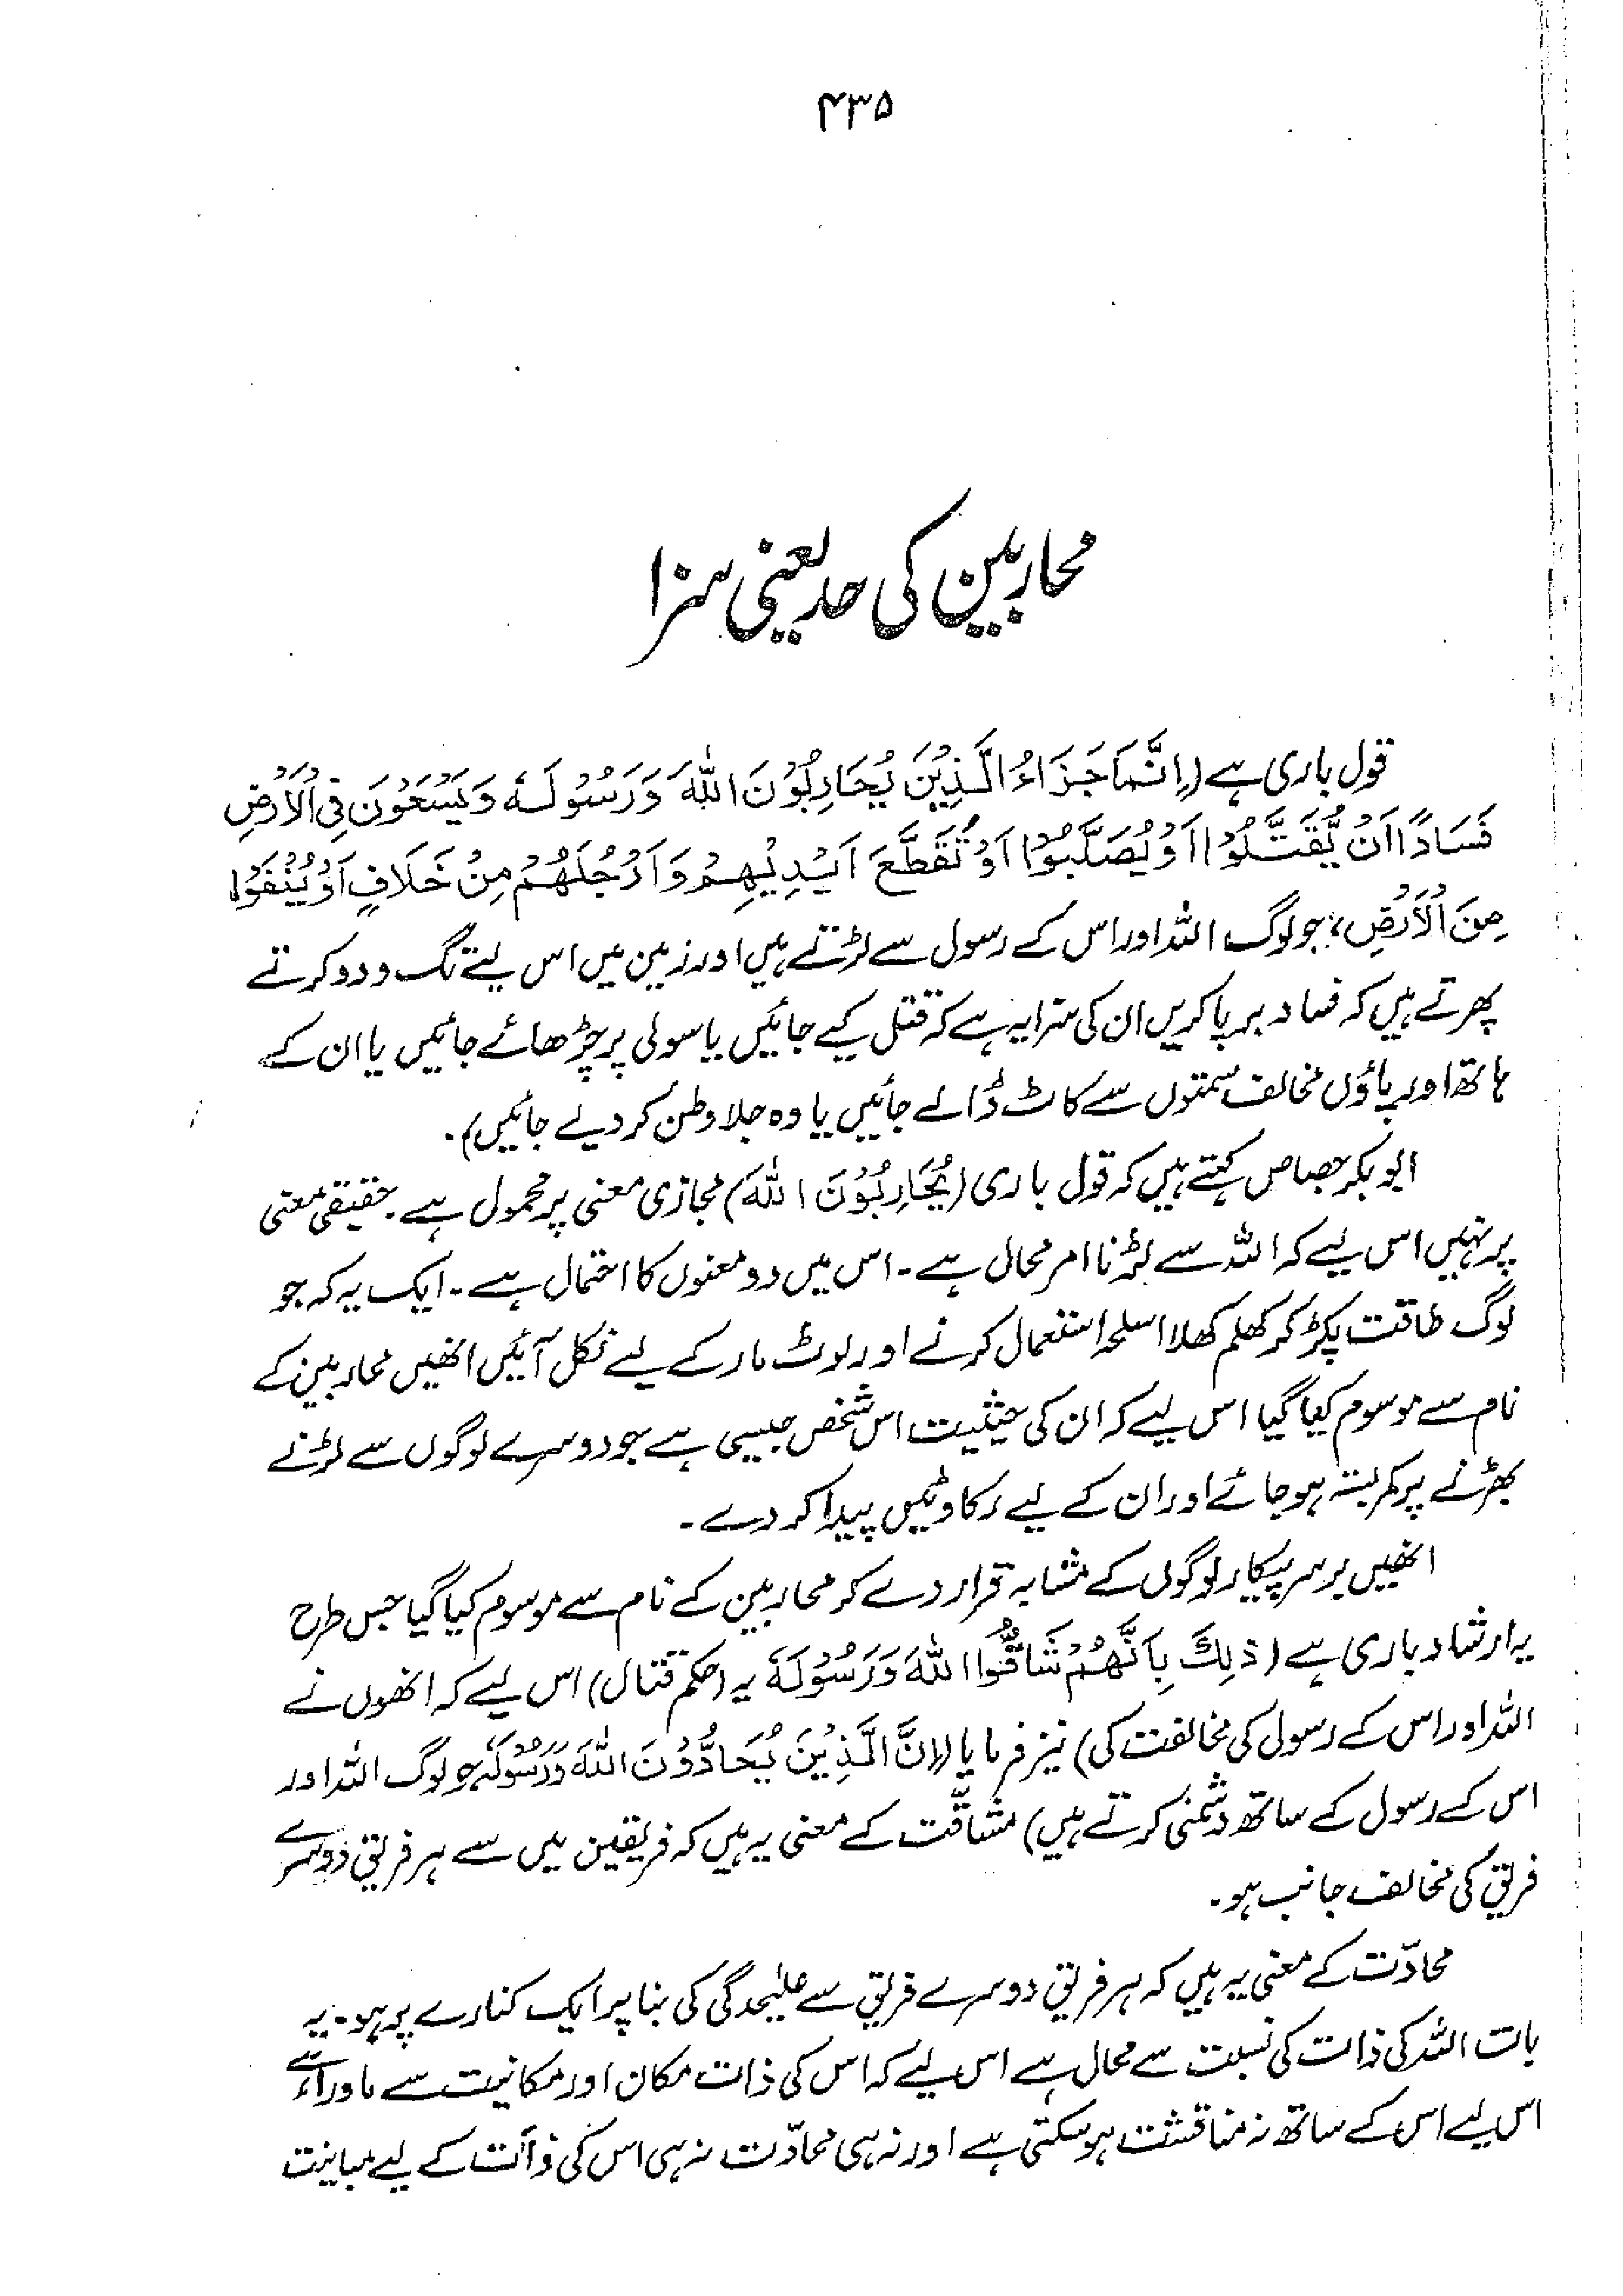 ۴۳۵
محاربین کی حد یعنی سزا
قول باری ہے (اِنَّمَا جَزَاءُ الَّذِيْنَ يُحَارِبُوْنَ اللّٰهَ وَرَسُوْلَهٗ وَيَسْعَوْنَ فِی الْاَرْضِ
فَسَادًا اَنْ يُّقَتَّلُوْا اَوْ يُصَلَّبُوْا اَوْ تُقَطَّعَ اَيْدِيْهِمْ وَاَرْجُلُهُمْ مِنْ خِلَافٍ اَوْ يُنْفَوْا
مِنَ الْاَرْضِ، جو لوگ اللہ اور اس کے رسول سے لڑتے ہیں اور زمین میں اس لیے تگ و دو کرتے
پھرتے ہیں کہ فساد برپا کریں ان کی سزا یہ ہے کہ قتل کیے جائیں یا سولی پر چڑھائے جائیں یا ان کے
ہاتھ اور پاؤں مخالف سمتوں سے کاٹ ڈالے جائیں یا وہ جلا وطن کر دیے جائیں)۔
ابوبکر جصاص کہتے ہیں کہ قول باری (يُحَارِبُوْنَ اللّٰهَ) مجازی معنی پر محمول ہے۔ حقیقی معنی
پر نہیں اس لیے کہ اللہ سے لڑنا امر محال ہے۔ اس میں دو معنوں کا احتمال ہے۔ ایک یہ کہ جو
لوگ طاقت پکڑ کر کھلم کھلا اسلحہ استعمال کرنے اور لوٹ مار کے لیے نکل آئیں انھیں محاربین کے
نام سے موسوم کیا گیا اس لیے کہ ان کی حیثیت اس شخص جیسی ہے جو دوسرے لوگوں سے لڑنے
بھڑنے پر کمربستہ ہو جائے اور ان کے لیے رکاوٹیں پیدا کر دے۔
انھیں برسرپیکار لوگوں کے مشابہ قرار دے کر محاربین کے نام سے موسوم کیا گیا جس طرح
یہ ارشاد باری ہے (ذٰلِكَ بِاَنَّهُمْ شَاقُّوا اللّٰهَ وَرَسُوْلَهٗ یہ (حکم قتال) اس لیے کہ انھوں نے
اللہ اور اس کے رسول کی مخالفت کی) نیز فرمایا (اِنَّ الَّذِيْنَ يُحَادُّوْنَ اللّٰهَ وَرَسُوْلَهٗ جو لوگ اللہ اور
اس کے رسول کے ساتھ دشمنی کرتے ہیں) مشاقّت کے معنی یہ ہیں کہ فریقین میں سے ہر فریق دوسرے
فریق کی مخالف جانب ہو۔
محادّت کے معنی یہ ہیں کہ ہر فریق دوسرے فریق سے علیٰحدگی کی بنا پر ایک کنارے پر ہو۔ یہ
بات اللہ کی ذات کی نسبت سے محال ہے اس لیے کہ اس کی ذات مکان اور مکانیت سے ماوراء ہے
اس لیے اس کے ساتھ نہ مناقشت ہو سکتی ہے اور نہ ہی محادّت نہ ہی اس کی ذات کے لیے مباینت